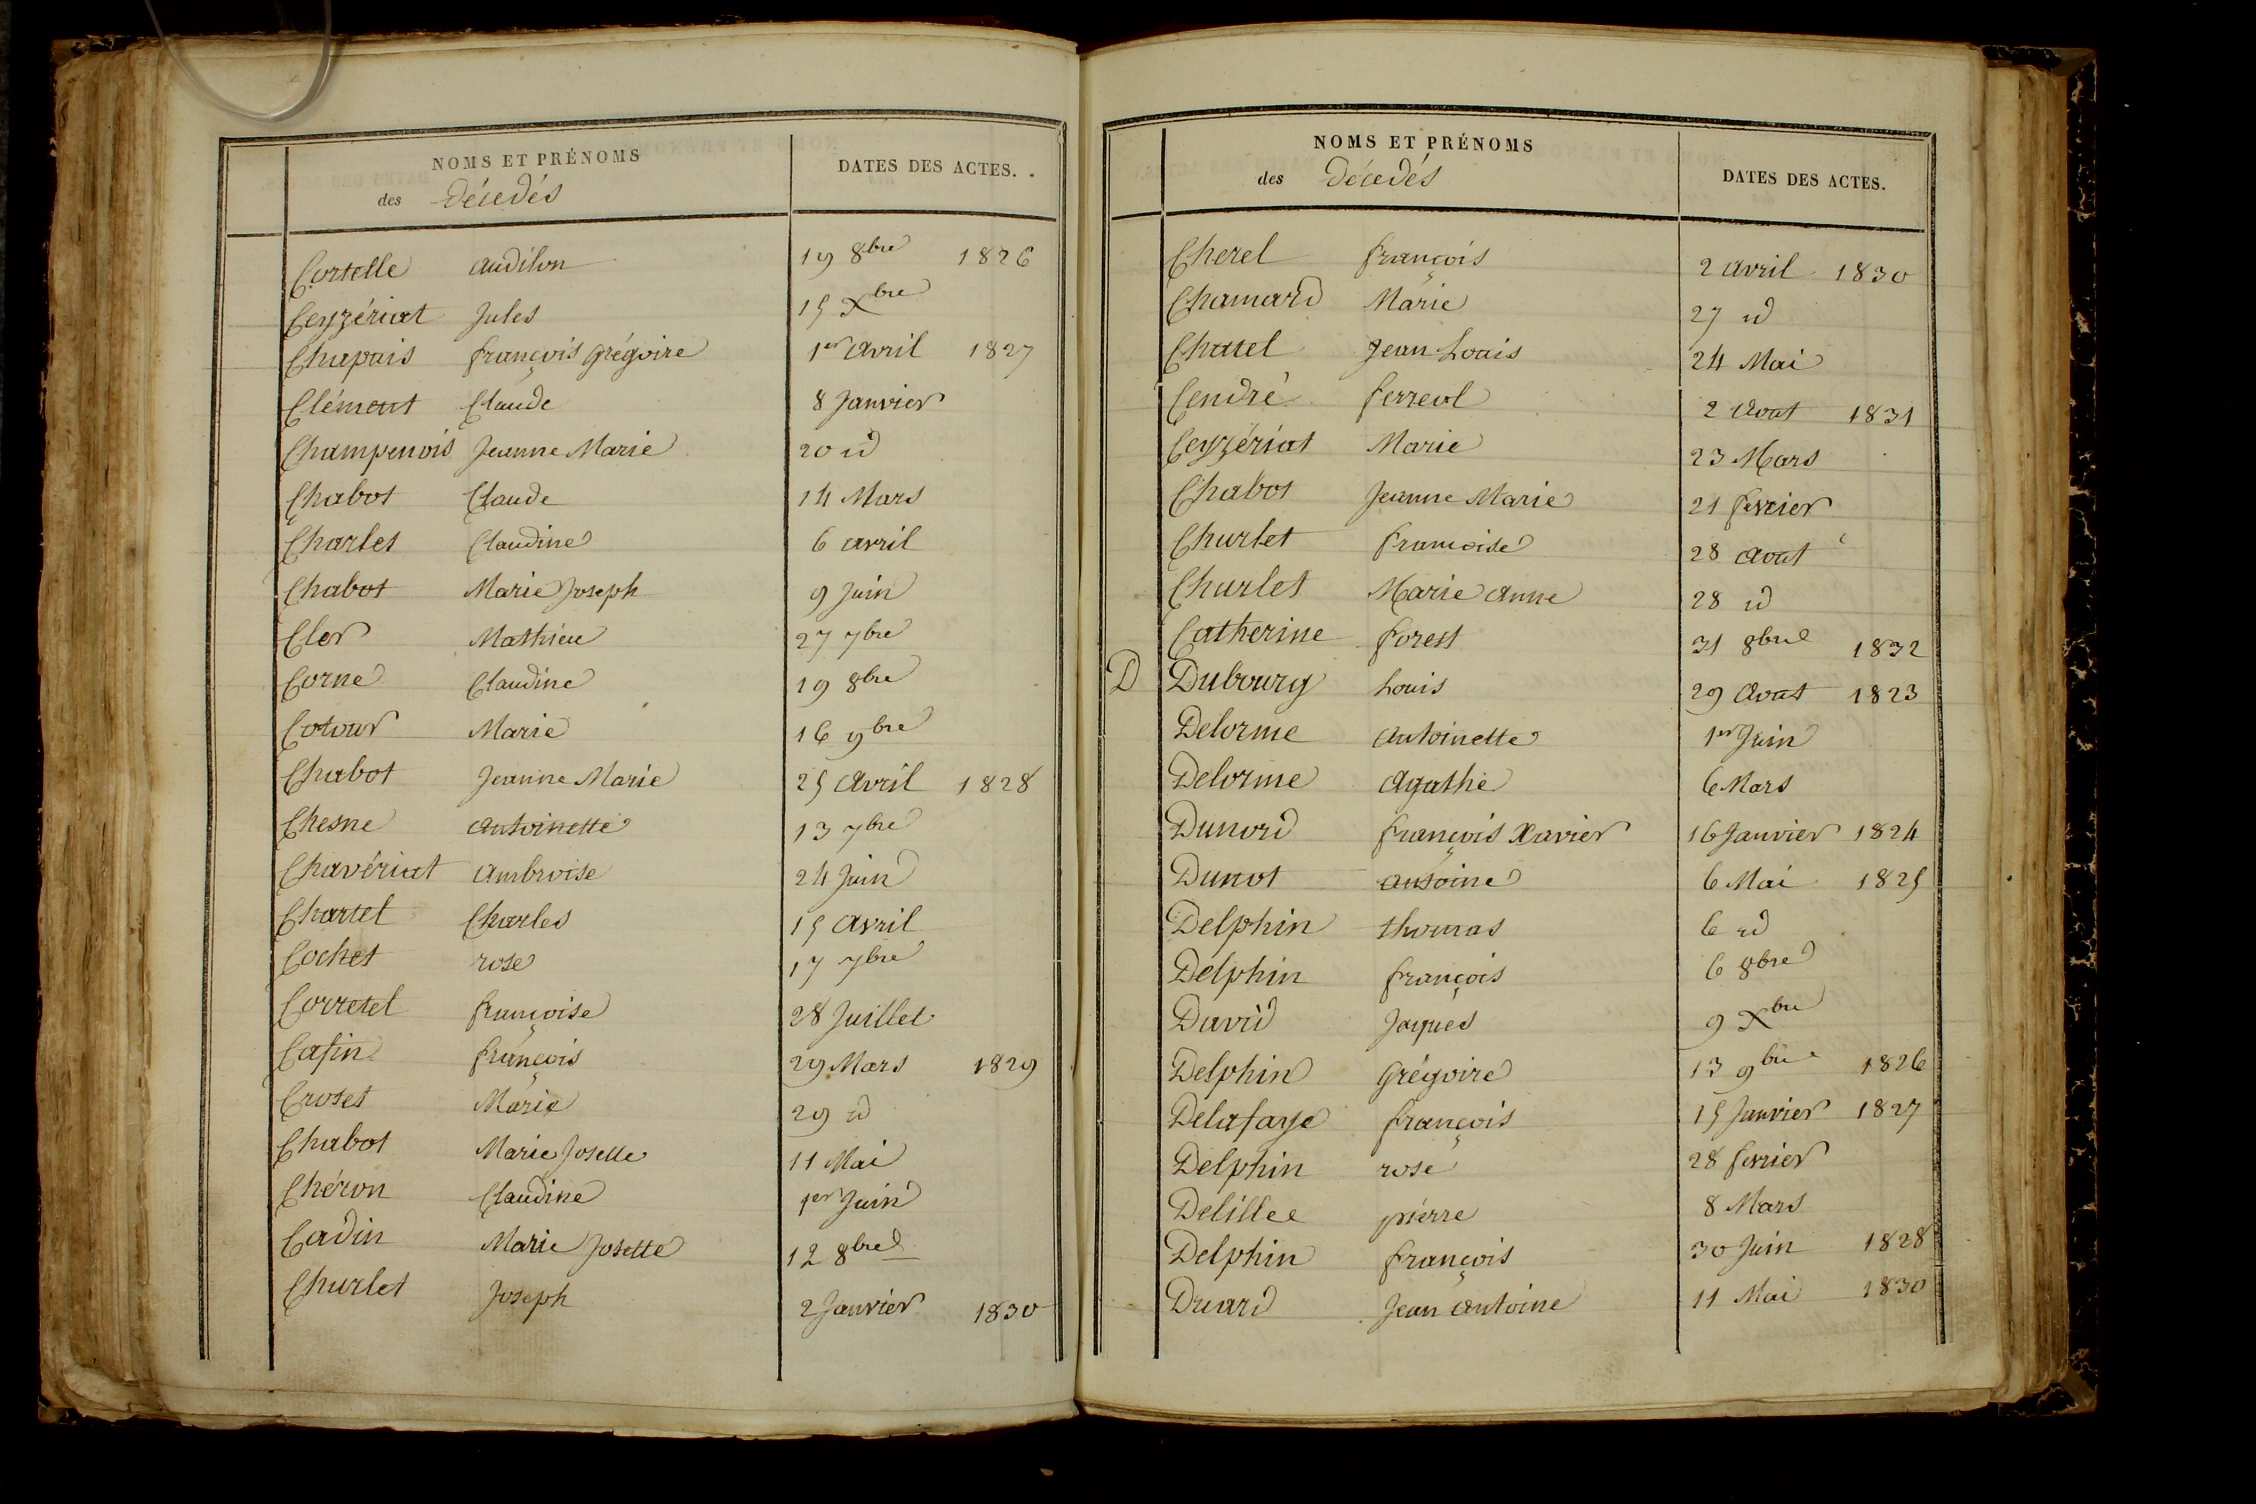 NOMS ET PRÉNOMS
des Décedés
DATES DES ACTES.
Cortelle audilon 19 8bre 1826
Ceyzériat Jules 15 Xbre
Chapuis françois Grégoire 1er avril 1827
Clément Claude 8 Janvier
Champenois Jeanne Marie 20 id
Chabot Claude 14 Mars
Charlet Claudine 6 avril
Chabot Marie Joseph 9 Juin
Cler Mathieu 27 7bre
Corne Claudine 19 8bre
Cotour Marie 16 9bre
Chabot Jeanne Marie 25 avril 1828
Chesne antoinette 13 7bre
Chavériat ambroise 24 Juin
Chartel Charles 15 avril
Cochet rose 17 7bre
Corretel françoise 28 Juillet
Casin françois 29 Mars 1829
Croset Marie 29 id
Chabot Marie Josette 11 Mai
Chéron Claudine 1er Juin
Cadin Marie Josette 12 8bre
Churlet Joseph 2 Janvier 1830
NOMS ET PRÉNOMS
des Décedés
DATES DES ACTES.
Cherel françois 2 avril 1830
Chamard Marie 27 id
Chatel Jean Louis 24 Mai
Cendré ferreol 2 Aout 1831
Ceyzériat Marie 23 Mars
Chabot Jeanne Marie 21 fevrier
Churlet francoise 28 aout
Churlet Marie anne 28 id
Catherine forest 31 8bre 1832
D Dubourg Louis 29 Aout 1823
Delorme antoinette 1er Juin
Delorme Agathe 6 Mars
Dunord françois Xavier 16 Janvier 1824
Dunot antoine 6 Mai 1825
Delphin thomas 6 id
Delphin françois 6 8bre
David Jaques 9 Xbre
Delphin Grégoire 13 9bre 1826
Delafaye françois 15 Janvier 1827
Delphin rose 28 fevrier
Delillee pierre 8 Mars
Delphin françois 30 Juin 1828
Duard Jean antoine 11 Mai 1830